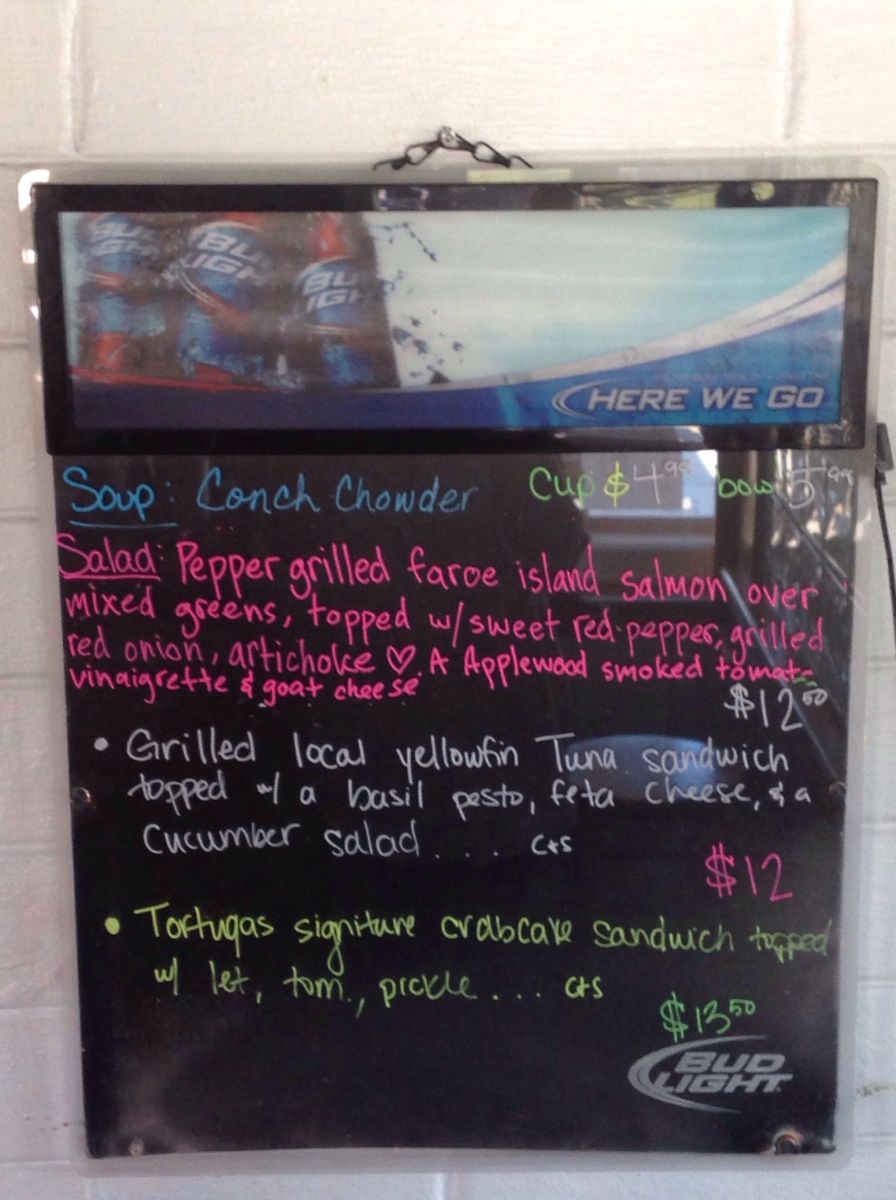 BUD LIGHT
BUD LIGHT
BU IGH
HERE WE GO
Soup: Conch Chowder Cup $4.99 bowl 5.99
Salad: Pepper grilled faroe island salmon over
mixed greens, topped w/ sweet red pepper, grilled
red onion, artichoke ♡. A Applewood smoked tomato
vinaigrette & goat cheese
$12.50
• Grilled local yellowfin Tuna sandwich
topped w/ a basil pesto, feta cheese, & a
Cucumber salad.... C+S
$12
• Tortugas signiture crabcake sandwich topped
w/ let, tom., pickle... C+S
$13.50
BUD
LIGHT